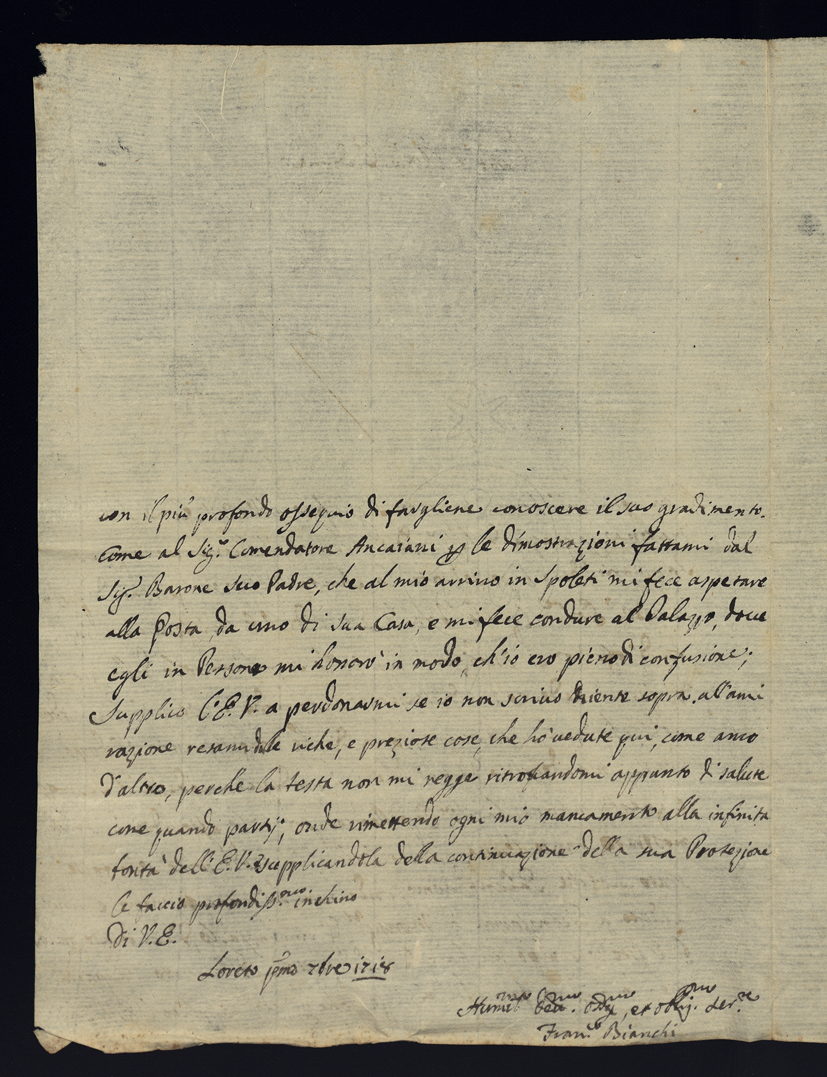 con il più profondo ossequio di fargliene conoscere il suo gradimento.
come al Sig.r Comendatore Ancaiani p le dimostrazioni fattami dal
Sig.r Barone suo Padre, che al mio arrivo in Spoleti mi fece aspetare
alla Posta da uno di sua Casa, e mi fece condure al Palazzo, dove
egli in Persona mi honorò in modo, ch'io ero pieno di confusione;
Supplico l'E.V. a perdonarmi se io non scrivo niente sopra all'ami
razione resami delle riche, e preziose cose, che hò vedute qui, come anco
d'altro, perche la testa non mi regge ritrovandomi appunto di salute
come quando partij, onde rimettendo ogni mio mancamento alla infinita
bontà dell'E.V. supplicandola della continuazione della sua Protezione
le faccio profondiss.mo inchino
Di V.E.
Loreto pmo 7bre 1718
Humil.mo Dev.mo, et obblig.mo Ser.re
Fran.o Bianchi